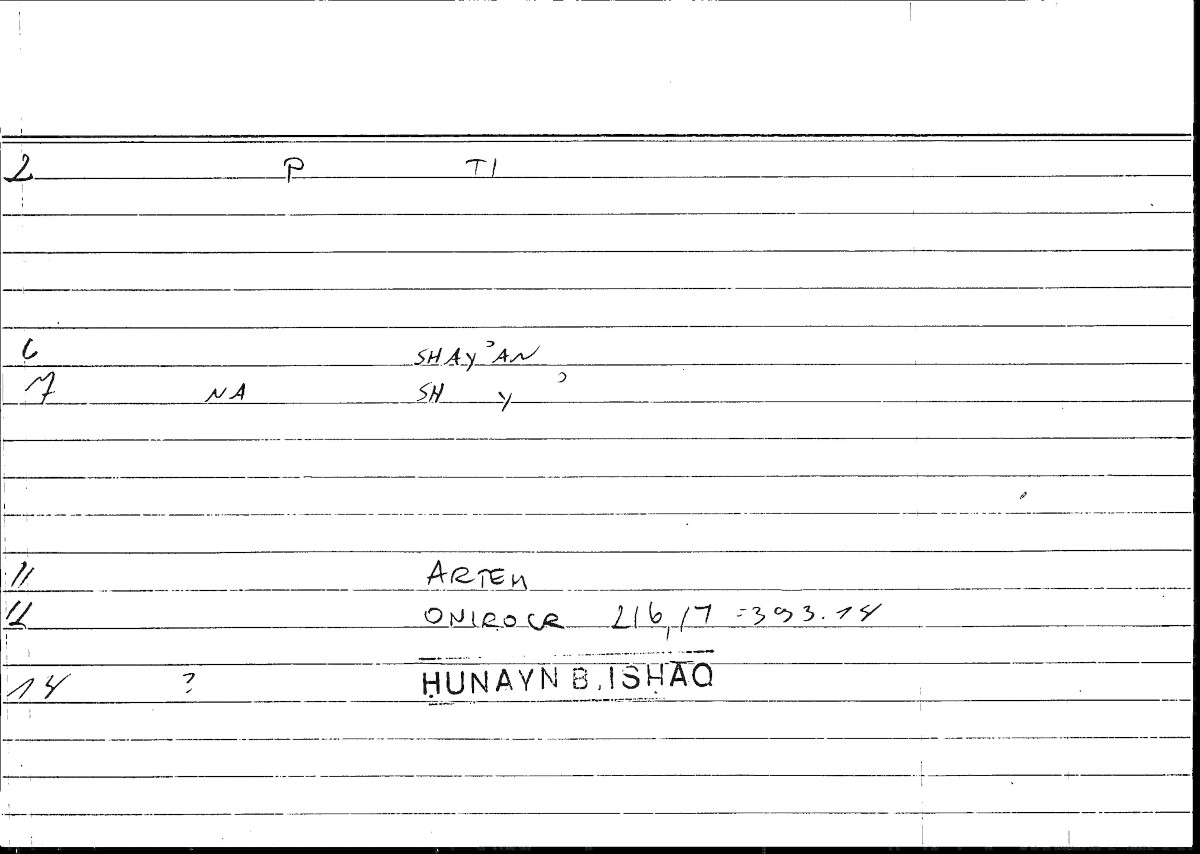 2 P TI
6 SHAYʾAN
7 NA SH Y ʾ
11 ARTEM
12 ONIROCR 216,17 =393.14
14 ? ḤUNAYN B. ISḤĀQ